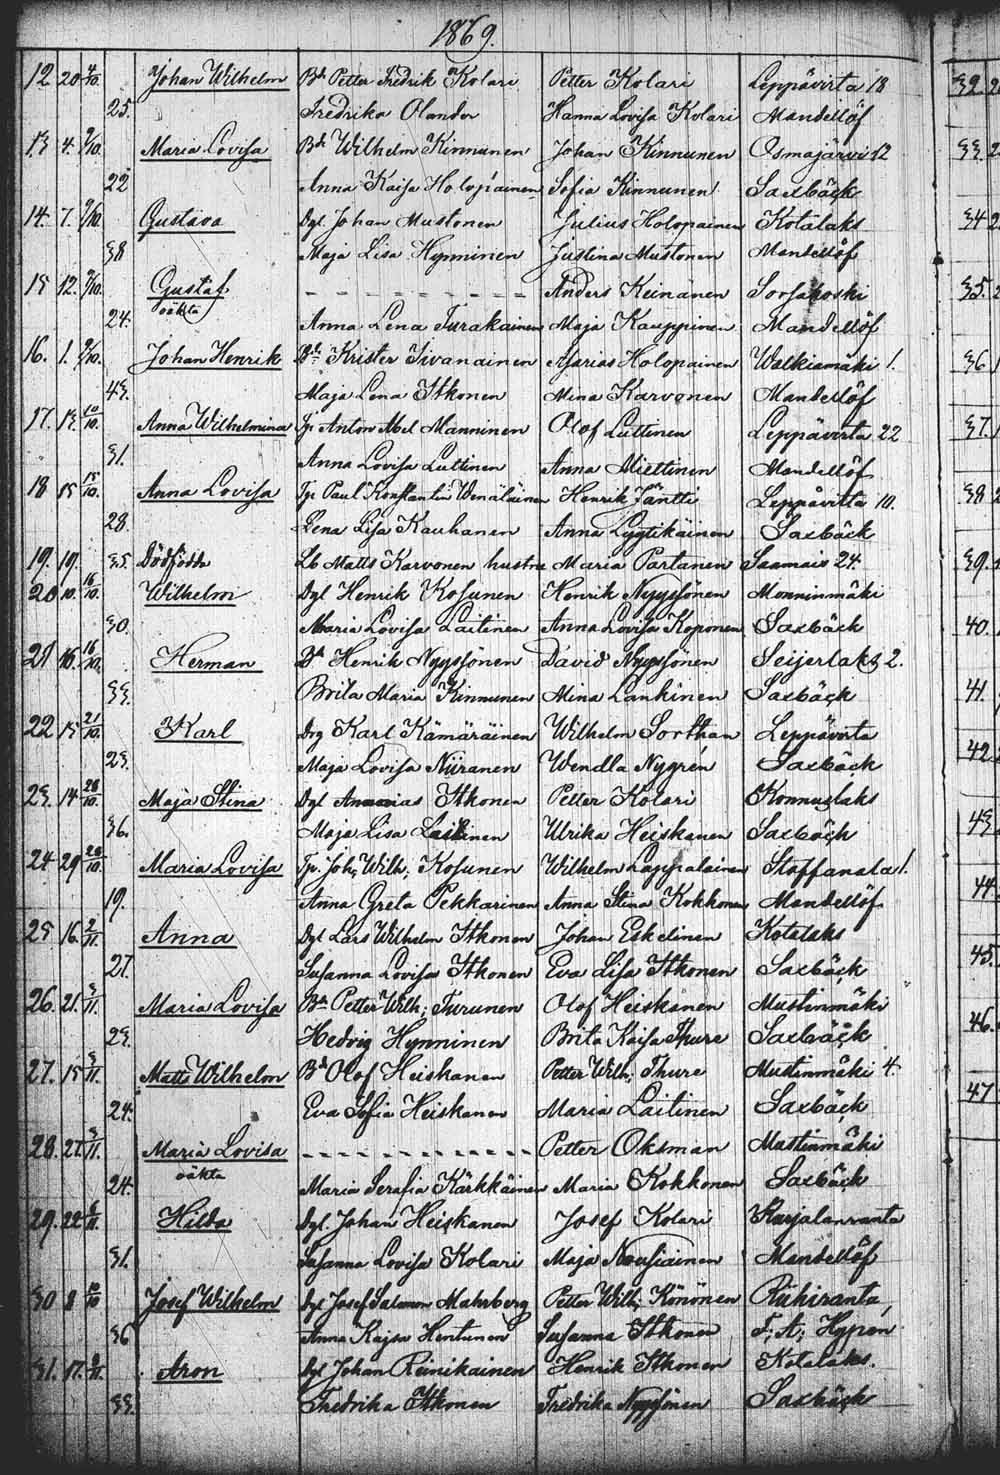 1869.
12. 20 4/10 Johan Wilhelm Bd Petter Fredrik Kolari Petter Kolari Leppävirta 18
25. Fredrika Olander Hanna Lovisa Kolari Mandellöf
13. 4. 9/10. Maria Lovisa Bd Wilhelm Kinnunen Johan Kinnunen Osmajärvi 12
22 Anna Kaisa Holopainen Sofia Kinnunen Saxbäck
14. 7. 9/10. Gustava Dgl Johan Mustonen Julius Holopainen Kotalaks
38 Maja Lisa Hynninen Justina Mustonen Mandellöf
15 12. 9/10. Gustaf Anders Keinänen Sorsakoski
oäkta
24. Anna Lena Turakainen Maja Kauppinen Mandellöf
16. 1. 9/10. Johan Henrik Bd Krister Iivanainen Holopainen Walkiamäki 1.
43. Maja Lena Itkonen Mina Karvonen Mandellöf
17. 13. 10/10. Anna Wilhelmina Anton Abel Manninen Olof Luttinen Leppävirta 22
31. Anna Lovisa Luttinen Anna Miettinen Mandellöf
18 15 15/10. Anna Lovisa Paul Konstantin Wenäläinen Henrik Jäntti Leppävirta 10.
28. Lena Lisa Kauhanen Anna Lyytikäinen Saxbäck
19. 19. 35. Dödfödde Matts Karvonen hustru Maria Partanen Saamais 24.
20 10. 16/10. Wilhelm Dgl Henrik Kosunen Henrik Nyyssönen Moninmäki
30. Maria Lovisa Laitinen Anna Lovisa Koponen Saxbäck
21 16. 16/10. Herman Bd Henrik Nyyssönen David Nyyssönen Seijerlaks 2.
33. Brita Maria Kinnunen Mina Lankinen Saxbäck
22 15 21/10. Karl Drg Karl Kämäräinen Wilhelm Sorthan Leppävirta
23. Maja Lovisa Niiranen Wendla Nygrén Saxbäck
23. 14 28/10. Maja Stina Dgl Ananias Itkonen Petter Kolari Konnuslaks
36. Maja Lisa Laitinen Ulrika Heiskanen Saxbäck
24 29 28/10. Maria Lovisa Joh. Wilh. Kosunen Wilhelm Lappalainen 1.
19. Anna Greta Pekkarinen Anna Stina Kokkonen Mandellöf
25 16. 2/11. Anna Dgl Lars Wilhelm Itkonen Johan Eskelinen Kotalaks
27. Susanna Lovisa Itkonen Eva Lisa Itkonen Saxbäck
26. 21. 3/11. Maria Lovisa Bd Petter Wilh. Turunen Olof Heiskanen Mustinmäki
23. Hedvig Hynninen Brita Kaisa Thure Saxbäck
27. 15 3/11. Matts Wilhelm Bd Olof Heiskanen Petter Wilh. Thure Mustinmäki 4.
24. Eva Sofia Heiskanen Maria Laitinen Saxbäck
28. 27. 3/11. Maria Lovisa Petter Oksman Mustinmäki
oäkta
24. Maria Serafia Kärkkäinen Maria Kokkonen Saxbäck
29. 22 6/11. Hilda Dgl. Johan Heiskanen Josef Kolari Karjalanranta
31. Susanna Lovisa Kolari Maja Nousiainen Mandellöf
30 8 10/10 Josef Wilhelm Dgl Josef Salomon Mahrberg Petter Wilh. Könönen Riihiranta
36 Anna Kajsa Hentunen Susanna Itkonen F. A. Hypen
31. 17. 9/11. Aron Dgl Johan Reinikainen Henrik Itkonen Kotalaks.
33. Fredrika Itkonen Fredrika Nyyssönen Saxbäck
32. 2
33. 2
34 2
35.
36
37.
38 2
39.
40
41.
42.
43
44.
45.
46.
47